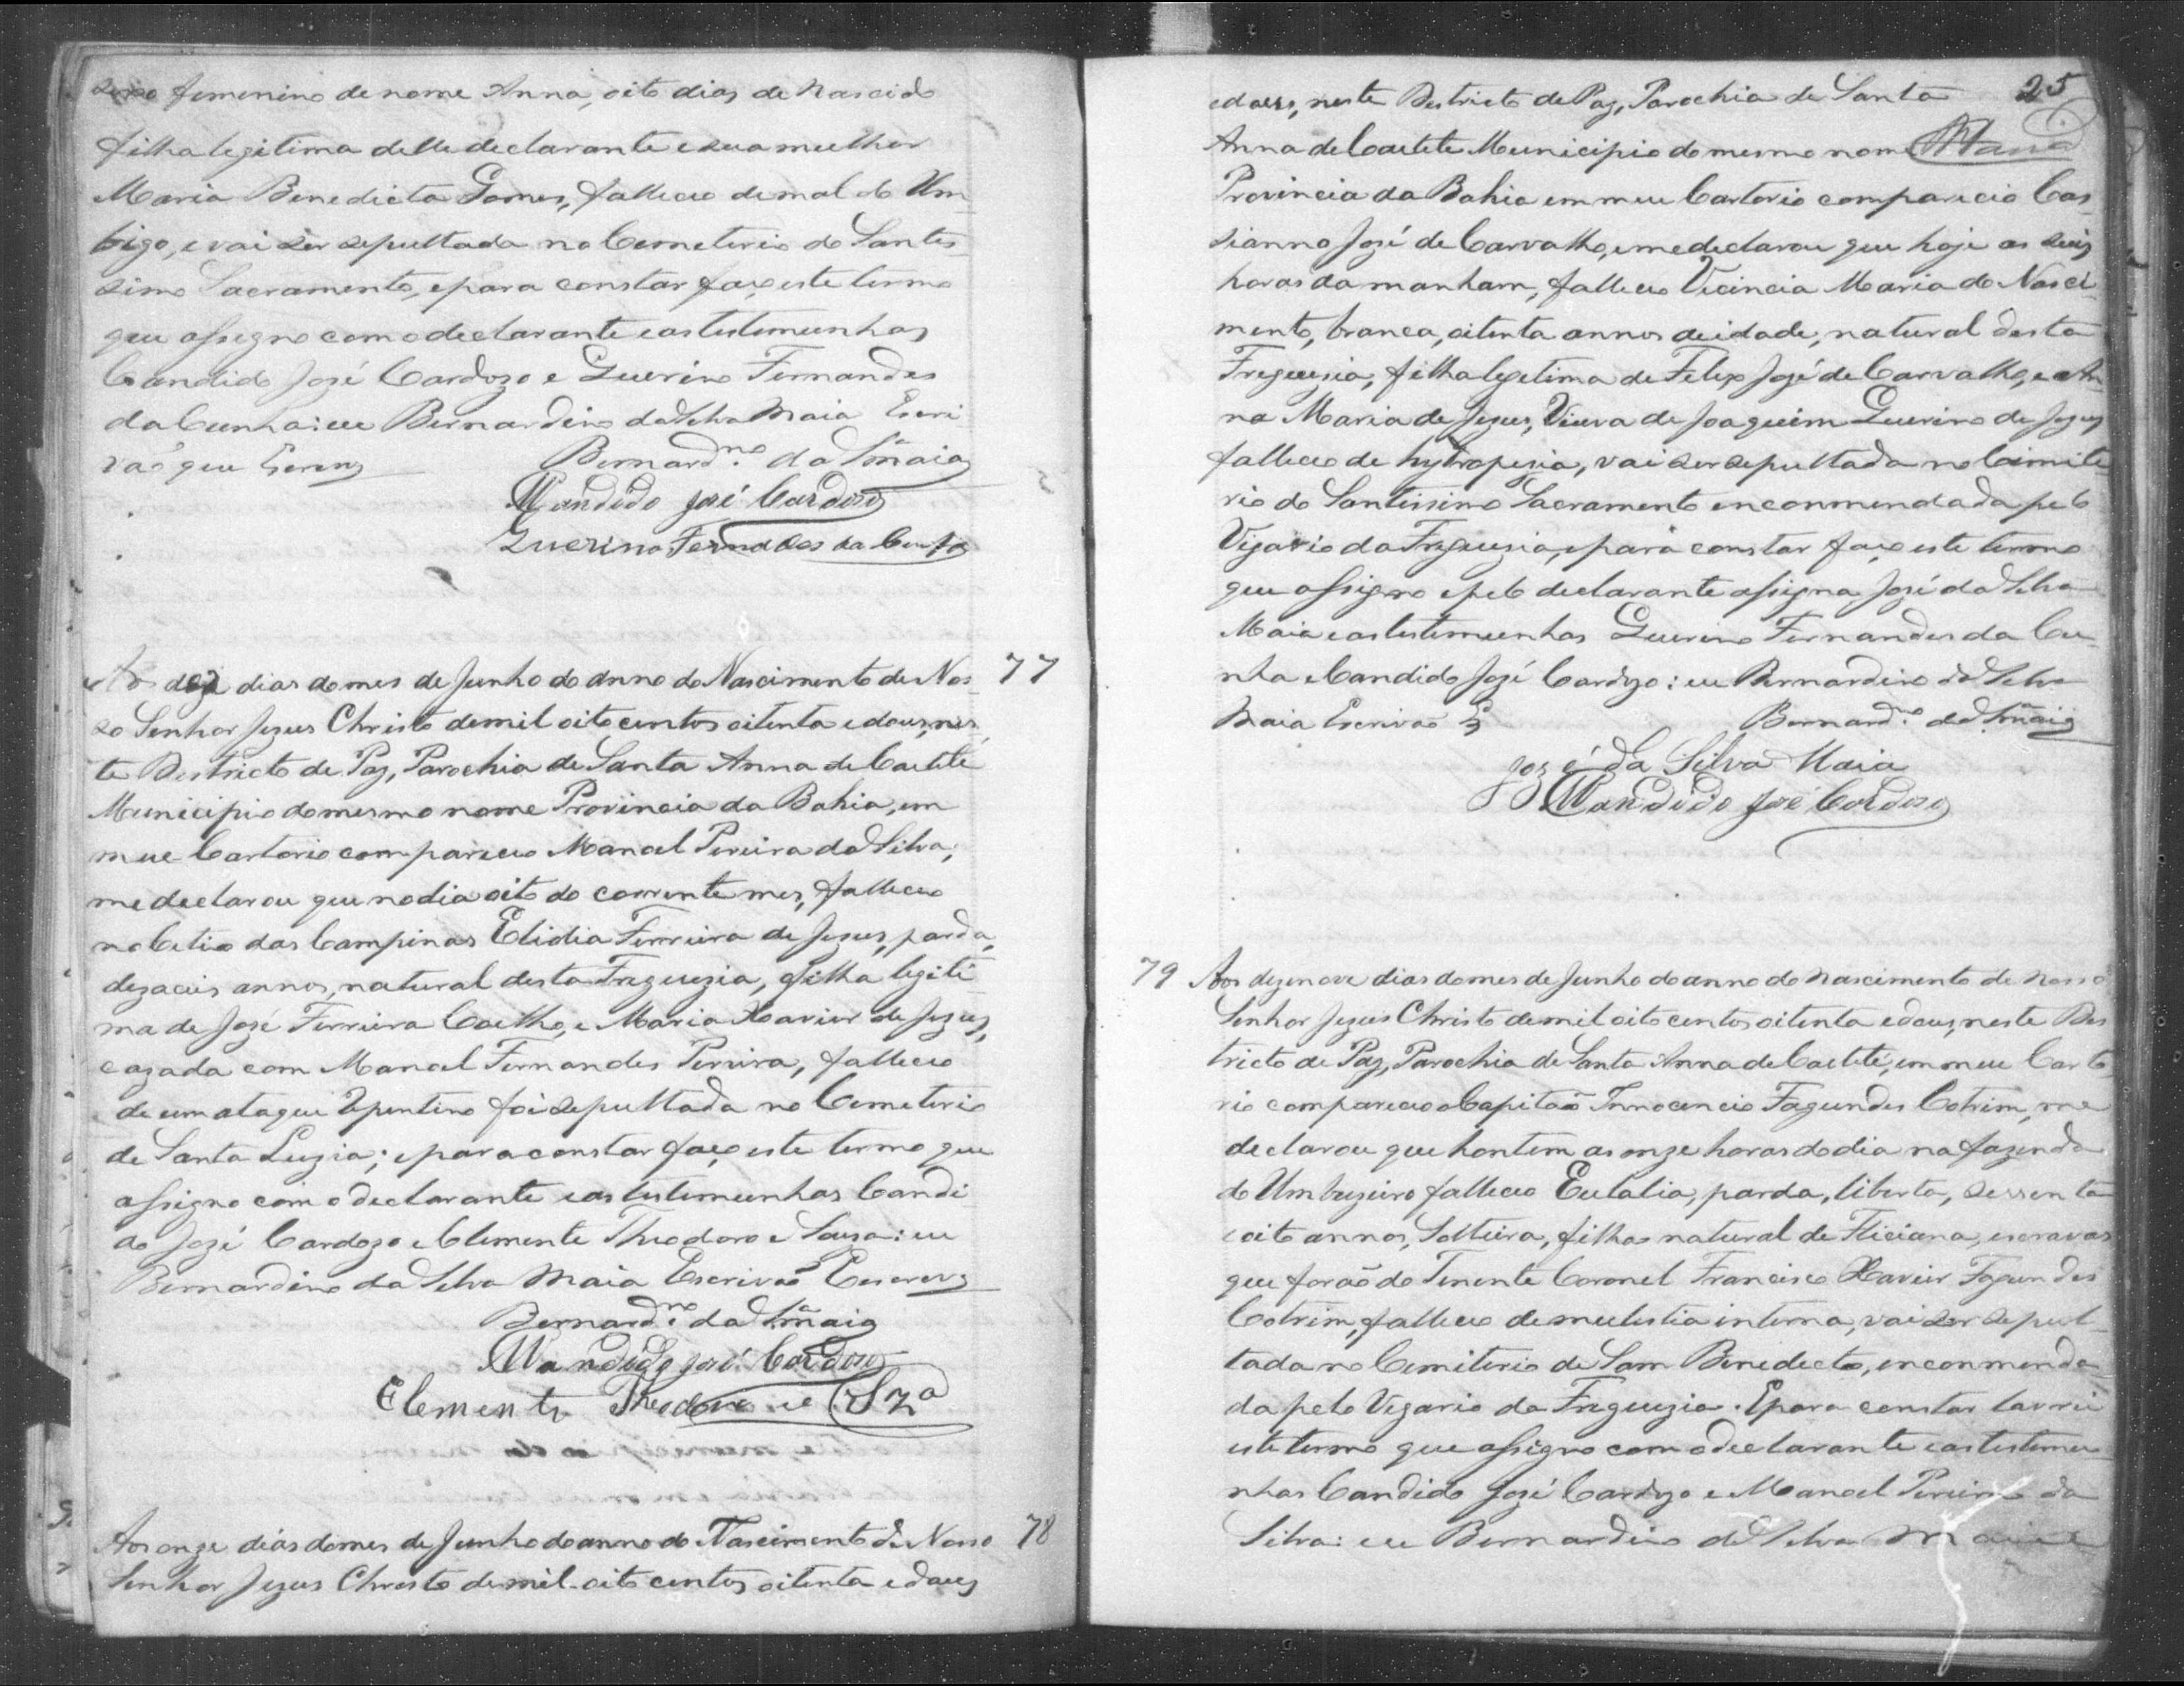 sexo femenino de nome Anna, oito dias de nascido
filha legitima delle declarante e sua mulher
Maria Benedicta Gomes, falleceo de mal do Um-
bigo, e vai ser sepultada no Cemeterio do Santis-
simo Sacramento, e para constar faço este termo
que assigno com o declarante e as testemunhas
Candido José Cardozo e Querino Fernandes
da Cunha: eu Bernardino da Silva Maia Escri
vaõ que Escrevy
Bernardno da Sa Maia
Candido José Cardoso
Querino Fernades da Cunha
Aos dez dias do mes de Junho do anno do Nascimento de Nos- 77
so Senhor Jezus Christo de mil oito centos oitenta e dous, nes-
te Destricto de Paz, Parochia de Santa Anna de Caetité
Municipio do mesmo nome Provincia da Bahia, em
meu Cartorio compareceo Manoel Pereira da Silva,
me declarou que no dia oito do corrente mes, falleceo
no Citio das Campinas Elidia Ferreira de Jesus, parda,
dezaceis annos, natural desta Freguezia, filha legiti
ma de José Ferreira Coelho, e Maria Xavier de Jezus,
cazada com Manoel Fernandes Pereira, falleceo
de um ataque repentino foi sepultada no Cemeterio
de Santa Luzia; e para constar faço este termo que
assigno com o declarante e as testemunhas Candi
do José Cardozo e Clemente Theodoro e Souza: eu
Bernardino da Silva Maia Escrivaõ Escrevy
Bernardno da Sa Maia
Candido José Cardoso
Clemente Theodoro e Sza
Aos onze dias do mes de Junho do anno do Nascimento de Nosso 78
Senhor Jezus Christo de mil oito centos oitenta e dous
25
e dous, neste Destricto de Paz, Parochia de Santa
Anna de Caetite Municipio do mesmo nome
Provincia da Bahia em meu Cartorio compareceo Cas-
sianno José de Carvalho, e me declarou que hoje as seis
horas da manham, falleceo Vicencia Maria do Nasci-
mento, branca, oitenta annos de idade, natural desta
Freguezia, filha legetima de Felix José de Carvalho, e An-
na Maria de Jezus, Viuva de Joaquim Querino de Jezus
falleceo de hydropezia, vai ser sepultada no Cimite
rio do Santissimo Sacramento enconmendada pelo
Vigario da Freguezia, e para constar faço este termo
que assigno e pelo declarante assigna José da Silva
Maia e as testemunhas Querino Fernandes da Cu-
nha e Candido José Cardozo: eu Bernardino da Silva
Maia Escrivaõ Ey
Bernardno da Sa Maia
José da Silva Maia
Candido José Cardoso
79 Aos dezenove dias do mes de Junho do anno do nascimento de nosso
Senhor Jezus Christo de mil oito centos oitenta e dous, neste Des
tricto de Paz, Parochia de Santa Anna de Caetité, em meu Carto
rio compareceo o Capitaõ Innocencio Fagundes Cotrim, me
declarou que hontem as onze horas do dia na fazenda
do Umbuzeiro falleceo Eulalia, parda, liberta, sessenta
e oito annos, Solteira, filha natural de Feliciana, escravas
que foraõ do Tenente Coronel Francisco Xavier Fagundes
Cotrim, falleceo de mulestia interna, vai ser sepul-
tada no Cemiterio de Sam Benedicto, enconmenda
da pelo Vigario da Freguezia. E para constar lavrei
este termo que assigno com o declarante e as testemu-
nhas Candido José Cardozo e Manoel Pereira da
Silva: eu Bernardino da Silva Maia